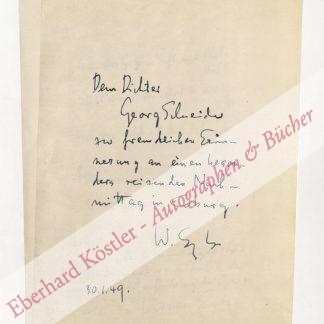 Dem Dichter
Georg Schneider
zur freundlichen Erin-
nerung an einen beson-
ders reizenden Nach-
mittag in
W.
30.1.49.
Eberhard Köstler - Autographen & Bücher